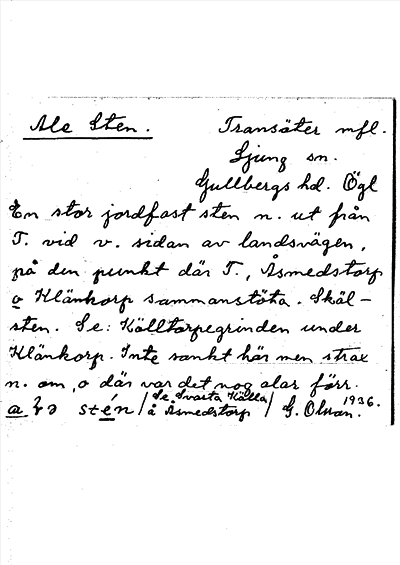 Ale Sten.
Transäter mfl.
Ljung sn.
Gullbergs hd. Ögl
En stor jordfast sten n. ut från
T. vid v. sidan av landsvägen,
på den punkt där T., Åsmedstorp
o Klänkorp sammanstöta. Skäl-
sten. Se: Källtorpegrinden under
Klänkorp. Inte sankt här men strax
n. om, o där var det nog alar förr.
stén / Se Svarta Källa å Åsmedstorp / G. Olson. 1936.